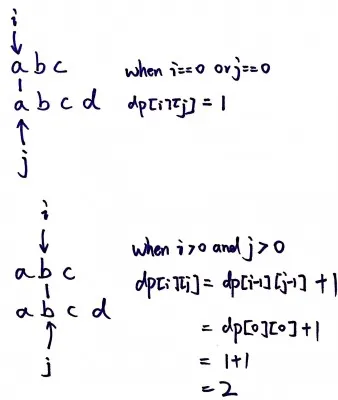 i
a b c
when i==0 or j==0
a b c d
dp[i][j] = 1
j
i
when i>0 and j>0
a b c
dp[i][j] = dp[i-1][j-1] + 1
a b c d
= dp[0][0]+1
j
= 1+1
= 2